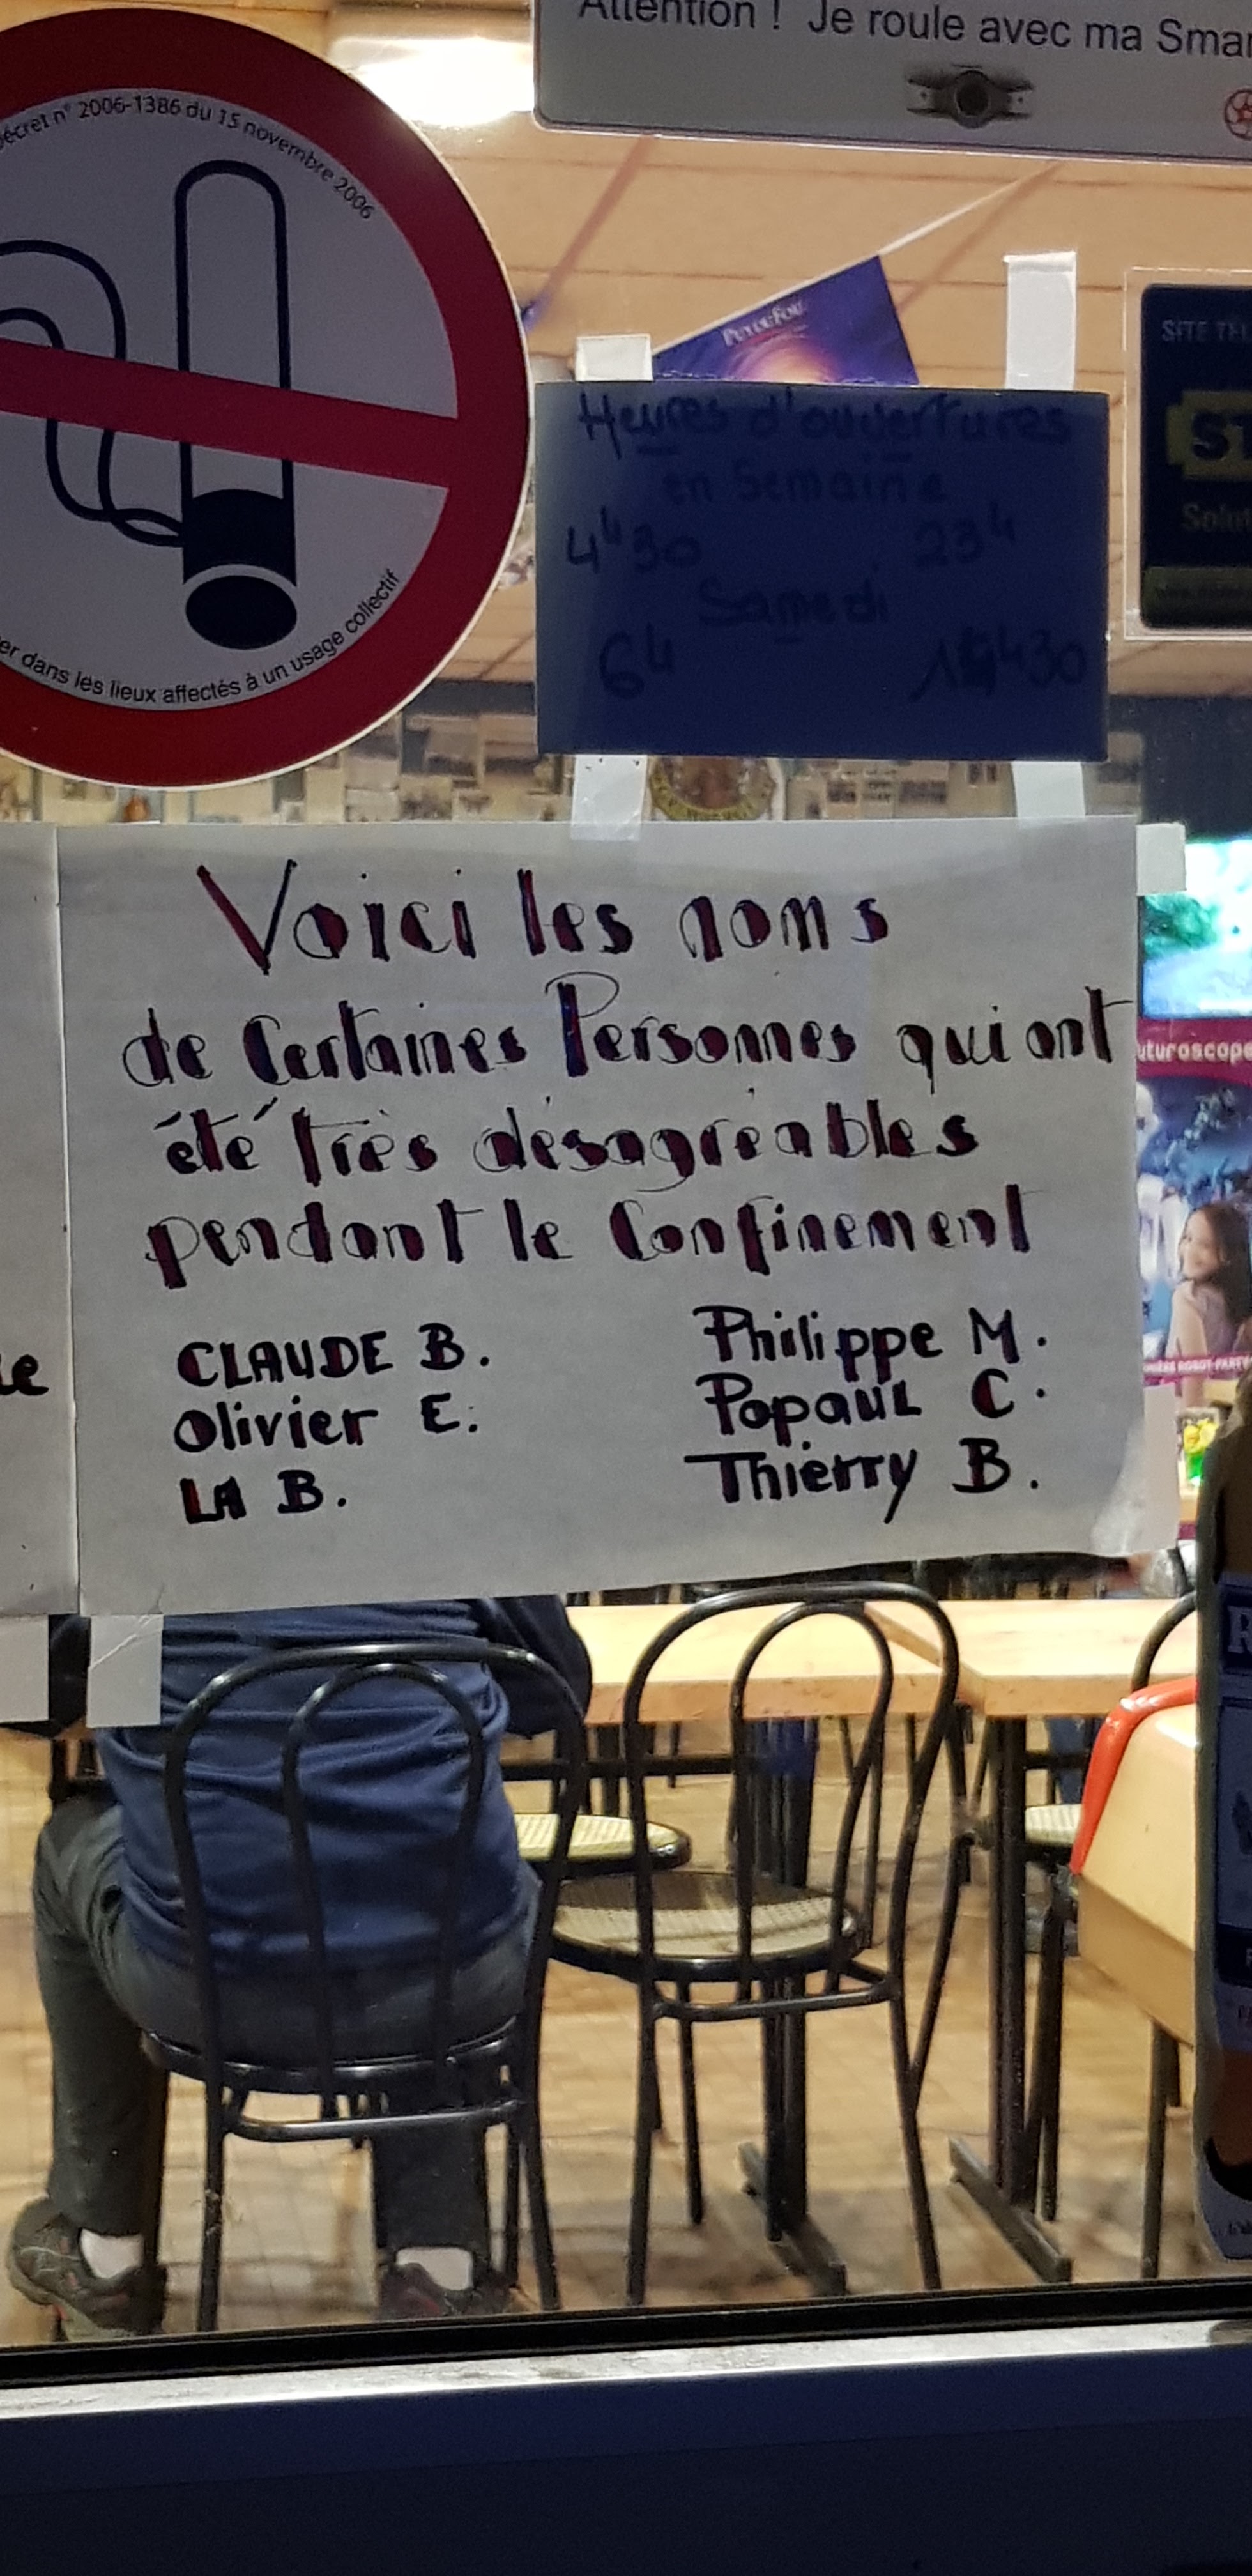 Attention ! Je roule avec ma
écret n° 2006-1386 du 15 novembre 2006
er dans les lieux affectés à un usage collectif
PUY DU FOU
SITE
Heures d'ouvertures
en Semaine
4h30 23h
Samedi
6h
Voici les noms
de Certaines Personnes qui ont
été très désagréables
pendant le Confinement
CLAUDE B. Philippe M.
Olivier E. Popaul C.
LA B. Thierry B.
le
uturoscope